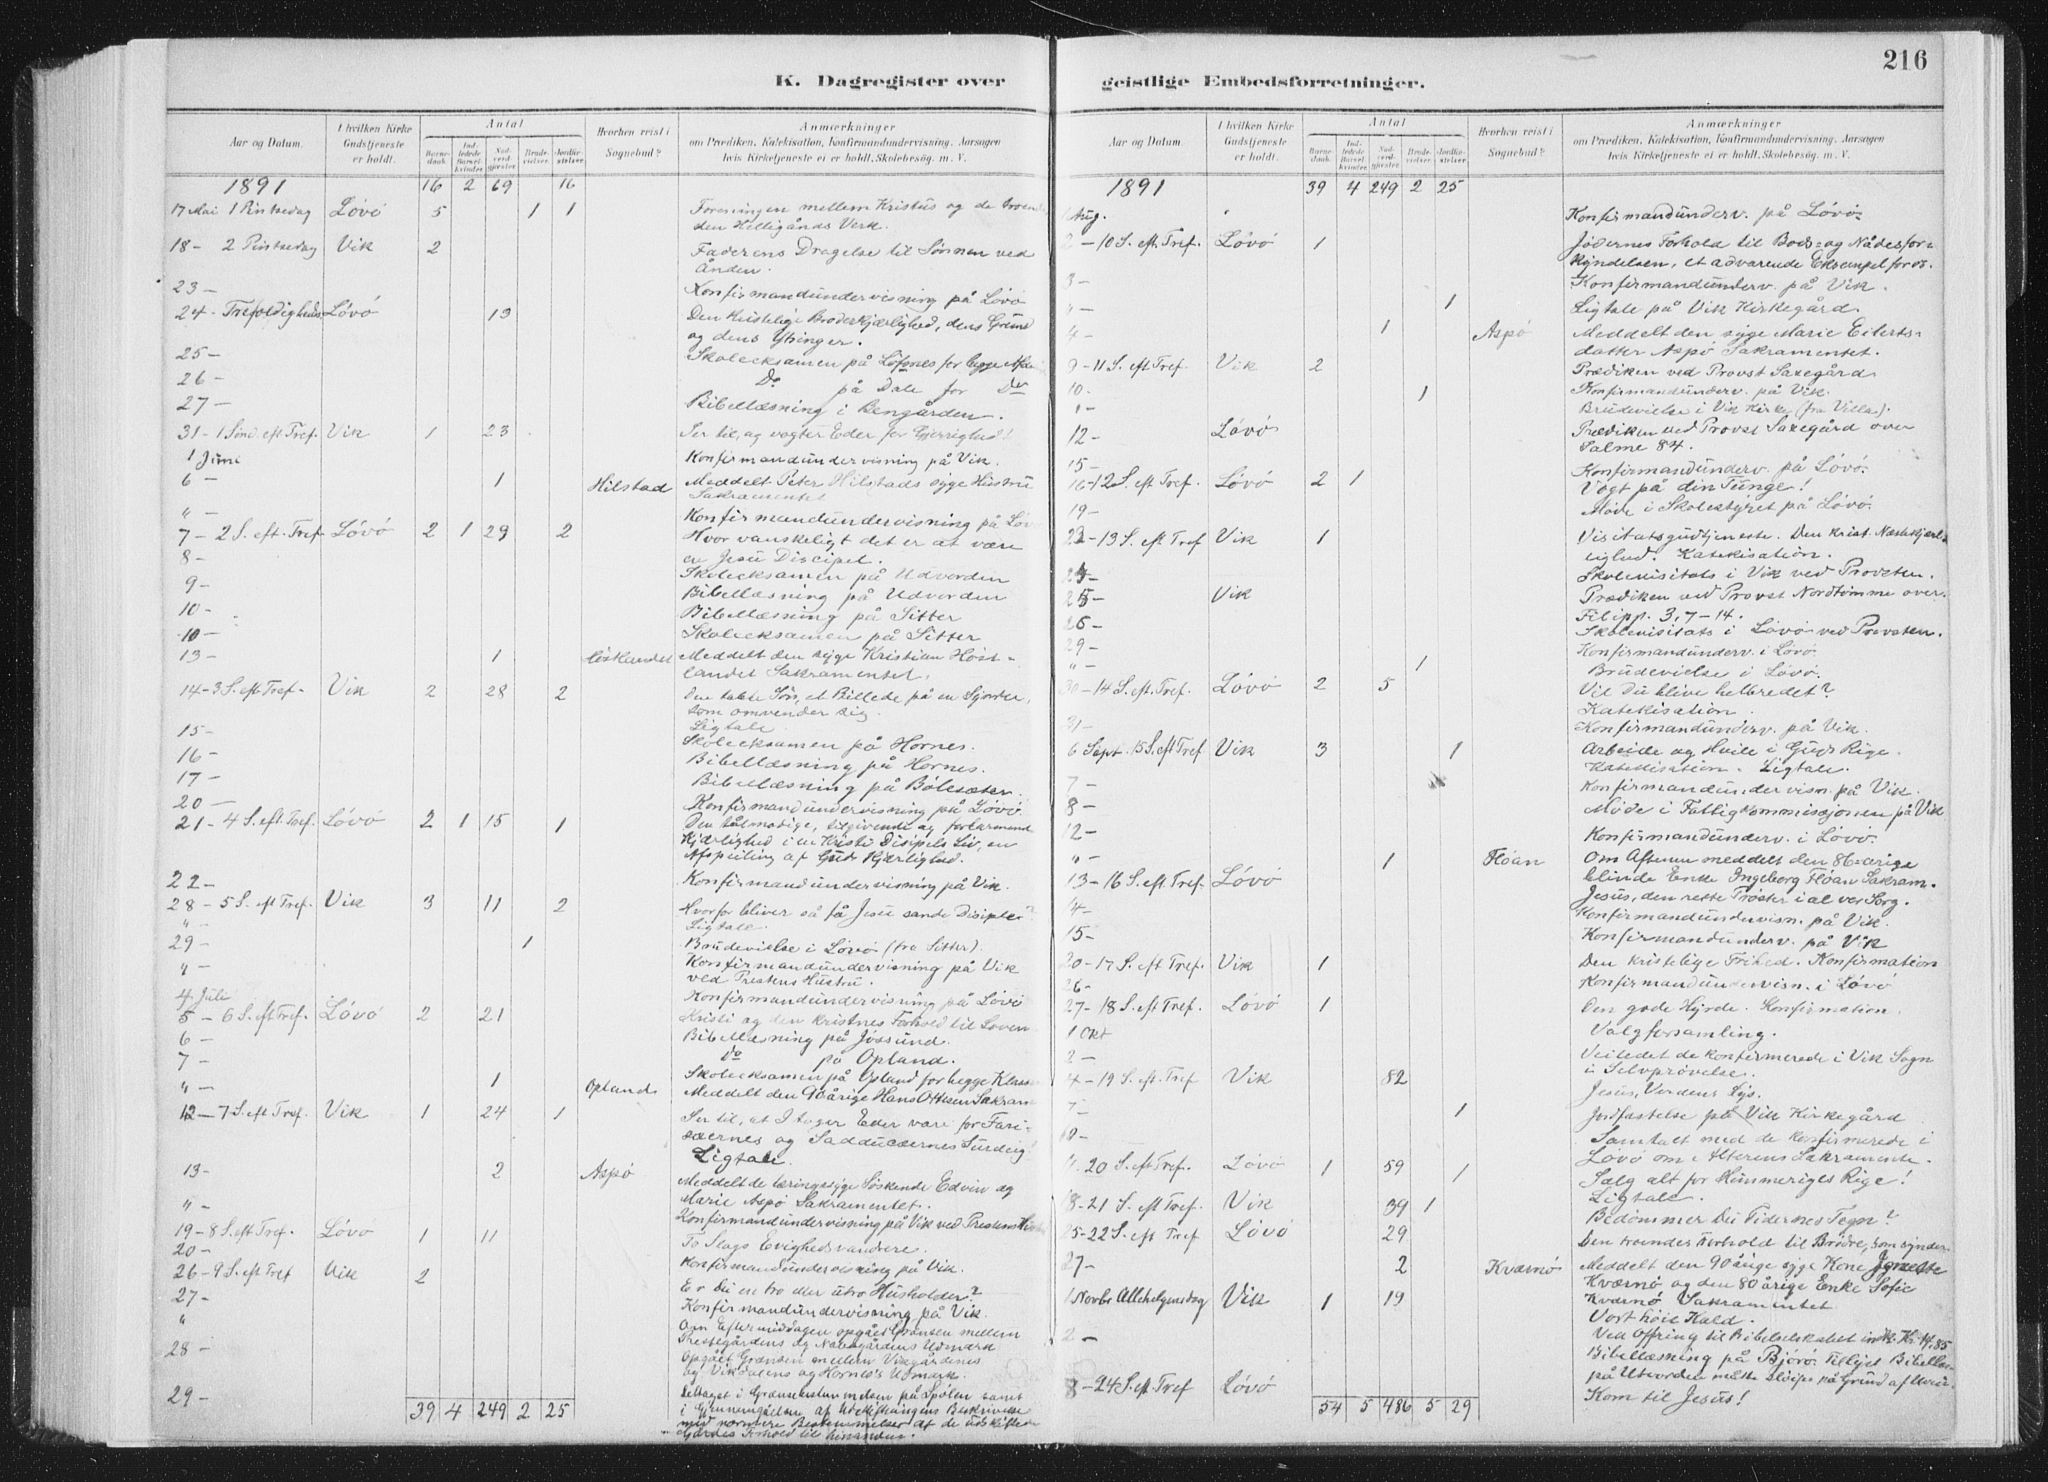 216
K. Dagregister over geistlige Embedsforretninger.
Aar og Datum. I hvilken Kirke Gudstjeneste er holdt. Antal Barne-daab. Ind-ledede Barsel-kvinder. Nad-verd-gjester Brude-vielser. Jordfæ-stelser. Hvorhen reist i Sognebud? Anmærkninger
om Prædiken, Katekisation, Konfirmandundervisning. Aarsagen
hvis Kirketjeneste ei er holdt. Skolebesøg. m. V.
1891 16 2 69 16
17 Mai 1 Pintsedag Løvø 5 1 1 Foreningen mellem Kristus og de troende
den Helligånds Verk.
18 - 2 Pintsedag Vik 2 Faderens Dragelse til Sønnen ved
Ånden.
23 - Konfirmandundervisning på Løvø
24 - Trefoldigheds Løvø 13 Den kristelige Broderkjærlighed, dens Grund
og dens Ytringer.
25 - Skoleeksamen på Løfsnes for begge
26 - Do på Dale for Do
27 - Bibellæsning i
31 - 1 Sønd. eft Tref. Vik 1 23 Ser til, og vogter Eder for Gjerrighed!
1 Juni Konfirmandundervisning på Vik.
6 - 1 Hilstad Meddelt Peter Hilstads syge Hustru
Sakramentet
" - Konfirmandundervisning på Løv
7 - 2 S. eft. Tref. Løvø 2 1 29 2 Hvor vanskeligt det er at være
en Jesu Discipel.
8 - Skoleeksamen på Utvorden
9 - Bibellæsning på Utvorden
10 - Bibellæsning på Sitter
10 - Skoleeksamen på Sitter
13 - 1 Meddelt den syge Kristian Høst-
landet Sakramentet.
14 - 3 S. eft. Tref. Vik 2 28 2 Den tabte Søn, et Billede på en Synder,
som omvender sig.
Ligtale.
15 - Skoleeksamen på Hornes.
16 - Bibellæsning på Hornes.
17 - Bibellæsning på Bølesæter.
20 - Konfirmandundervisning på Løvø.
21 - 4 S. eft. Tref. Løvø 2 1 15 1 Den tålmodige, tilgivende og forbarmend
Kjærlighed i en Kristi Disipels Liv, en
Afspeiling af Guds Kjærlighed.
22 - Konfirmandundervisning på Vik.
28 - 5 S. eft Tref. Vik 3 11 2 Hvorfor bliver så få Jesu sande Disipler?
" - Ligtale.
29 - 1 Brudevielse i Løvø (fra Sitter).
" - Konfirmandundervisning på Vik
ved Prestens Hustru.
4 Juli Konfirmandundervisning på Løvø
5 - 6 S. eft Tref. Løvø 2 21 Kristi og den kristnes Forhold til Loven
6 - Bibellæsning på Jøssund.
7 - Do på Opland.
Skoleeksamen på Opland for begge Klasser
" - 1 Opland Meddelt den 90 årige Hans Ottesen Sakram
12 - 7 S. eft Tref. Vik 1 24 1 Ser til, at I tager Eder vare for Fari-
sæernes og Sadducæernes Surdeig!
Ligtale.
13 - 2 Aspø Meddelt de søskende Edvin og
Marie Aspø Sakramentet.
" - Konfirmandundervisning på Vik ved Prestens
19 - 8 S. eft Tref. Løvø 1 11 To Slags Evighedsvandrere.
20 - Konfirmandundervisning på Vik.
26 - 9 S. eft Tref Vik 2 Er Du en tro eller utro Husholder?
27 - Konfirmandundervisning på Vik.
" Om Eftermiddagen opgået Grænsen mellem
Prestegårdens og Nabogårdens Udmark
28 - Opgået Grænsen mellem Vikgårdenes
og Vikdalens og Hornes's Udmark.
29 - Deltaget i
39 4 249 2 25
Aar og Datum. I hvilken Kirke Gudstjeneste er holdt. Antal Barne-daab. Ind-ledede Barsel-kvinder. Nad-verd-gjester Brude-vielser. Jordfæ-stelser. Hvorhen reist i Sognebud? Anmærkninger
om Prædiken, Katekisation, Konfirmandundervisning. Aarsagen
hvis Kirketjeneste ei er holdt. Skolebesøg. m. V.
1891 39 4 249 2 25
1 Aug. Konfirmandunderv. på Løvø.
2 - 10 S. eft. Tref. Løvø 1 Jødernes Forhold til Bods- og Nådesfor-
kyndelsen, et advarende Eksempel for os.
3 - Konfirmandunderv. på Vik.
" - 1 Ligtale på Vik Kirkegård.
4 - 1 Aspø Meddelt den syge Marie Eilerts-
datter Aspø Sakramentet.
9 - 11 S. eft Tref Vik 2 Prædiken ved Provst Saxegård
10. Konfirmandunderv. på Vik.
1 Brudevielse i Vik Kirke (fra Villa).
12 - Løvø Prædiken ved Provst Saxegård over
Salme 84.
15 - Konfirmandunderv. på Løvø.
16 - 12 S. eft Tref. Løvø 2 1 Vogt på din Tunge!
19 - Møde i Skolestyret på Løvø.
23 - 13 S. eft Tref Vik 1 Visitatsgudtjeneste. Den krist. Næstekjærl
ighed. Katekisation.
24 - Skolevisitats i Vik ved Provsten.
25 - Vik Prædiken ved Provst Nordtømme over
Filipp. 3, 7-14.
26 - Skolevisitats i Løvø ved Provsten.
29 - Konfirmandunderv. i Løvø.
" - 1 Brudevielse i Løvø.
30 - 14 S. eft. Tref. Løvø 2 5 Vil Du blive helbredet?
Katekisation.
31 - Konfirmandunderv. på Vik.
6 Sept. 15 S. eft Tref Vik 3 1 Arbeide og Hvile i Guds Rige.
Katekisation. Ligtale.
7 - Konfirmandundervisn. på Vik.
8 - Møde i Fattigkommissjonen på Vik
12 - Konfirmandunderv. i Løvø.
" - 1 Fløan Om Aftenen meddelt den 86-årige
blinde Enke Ingeborg Fløan Sakram.
13 - 16 S. eft. Tref. Løvø Jesus, den rette Trøster i al vor Sorg.
14 - Konfirmandundervisn. på Vik.
15 - Konfirmandunderv. på Vik
20 - 17 S. eft Tref. Vik 1 Den kristelige Frihed. Konfirmation
26 - Konfirmandundervisn. i Løvø
27 - 18 S. eft Tref. Løvø 1 Den gode Hyrde. Konfirmation.
1 Okt Valgforsamling.
2 - Veiledet de konfirmerede i Vik Sogn
i Selvprøvelse.
4 - 19 S. eft. Tref Vik 82 Jesus, Verdens Lys.
7 - 1 Jordfæstelse på Vik Kirkegård
10 - Samtalt med de konfirmerede i
Løvø om Alterens Sakramente.
11. 20 S. eft Tref. Løvø 1 59 1 Sælg alt for Himmeriges Rige!
Ligtale.
18 - 21 S. eft Tref. Vik 39 1 Bedømmer Du Tidernes Tegn?
25 - 22 S. eft Tref Løvø 29 Den troendes Forhold til Brødre, som synder
27 - 2 Kværnø Meddelt den 90 årige syge Kone
Kværnø og den 80 årige Enke Sofie
Kværnø Sakramentet
1 Novbr Allehelgensdag Vik 1 19 Vort høie Kald.
Ved Offring til Bibelselskabet indk. Kr. 14,85
2 - Bibellæsning på Bjørø. Tillyst Bibellæs
på Utvorden måtte sløifes på Grund af Uveir.
8 - 24 S. eft Tref Løvø Kom til Jesus!
54 5 486 5 29